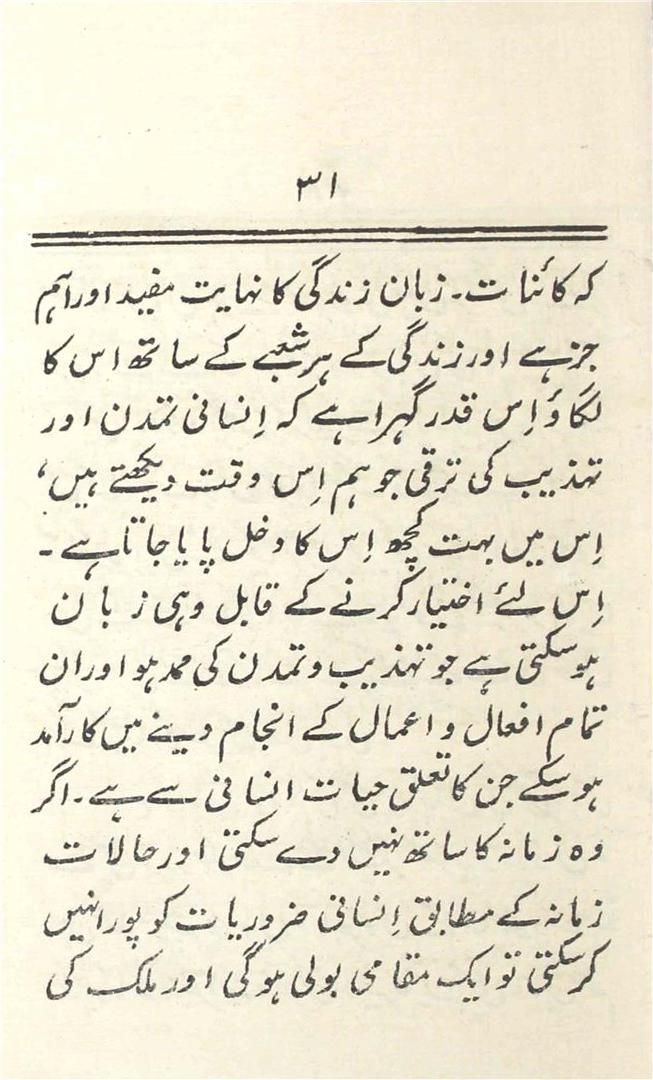 ۳۱
کہ کائنات۔ زبان زندگی کا نہایت مفید اور اہم
جز ہے اور زندگی کے ہر شعبے کے ساتھ اس کا
لگاؤ اِس قدر گہرا ہے کہ اِنسانی تمدن اور
تہذیب کی ترقی جو ہم اِس وقت دیکھتے ہیں،
اِس میں بہت کچھ اِس کا دخل پایا جاتا ہے۔
اِس لئے اختیار کرنے کے قابل وہی زبان
ہو سکتی ہے جو تہذیب و تمدن کی ممد ہو اور ان
تمام افعال و اعمال کے انجام دینے میں کارآمد
ہو سکے جن کا تعلق حیات انسانی سے ہے۔ اگر
وہ زمانہ کا ساتھ نہیں دے سکتی اور حالات
زمانہ کے مطابق اِنسانی ضروریات کو پورا نہیں
کر سکتی تو ایک مقامی بولی ہوگی اور ملک کی